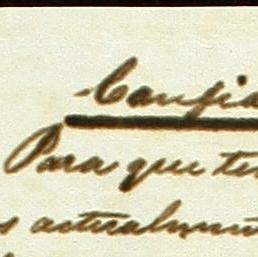 Confia
Para que te
s actualmen